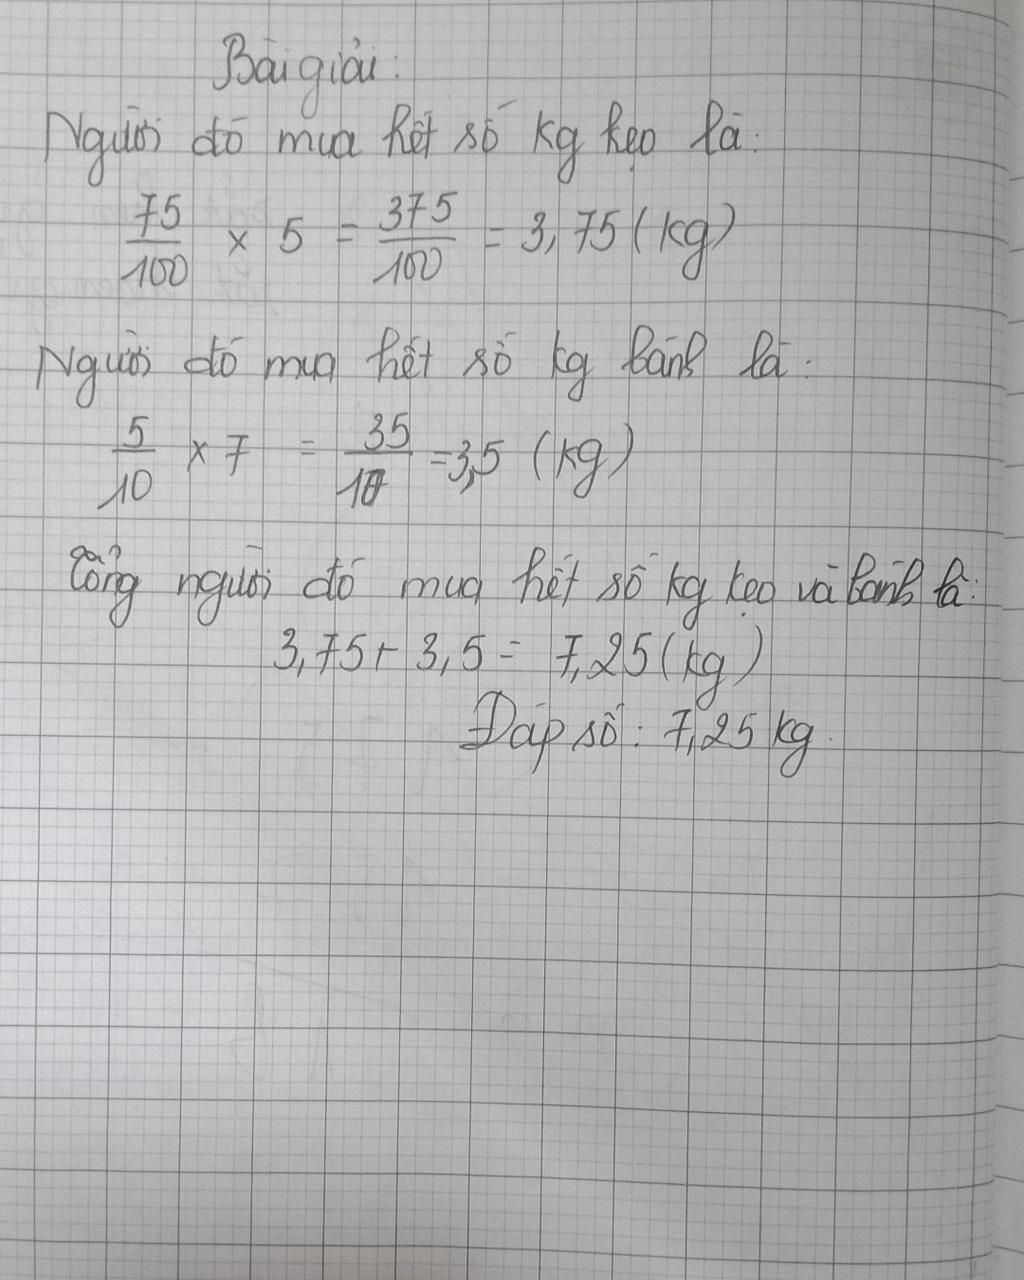 Bài giải:
Người đó mua hết số kg kẹo là:
75/100 × 5 = 375/100 = 3,75 (kg)
Người đó mua hết số kg bánh là:
5/10 × 7 = 35/10 = 3,5 (kg)
người đó mua hết số kg kẹo và bánh là:
3,75 + 3,5 = 7,25 (kg)
Đáp số: 7,25 kg.